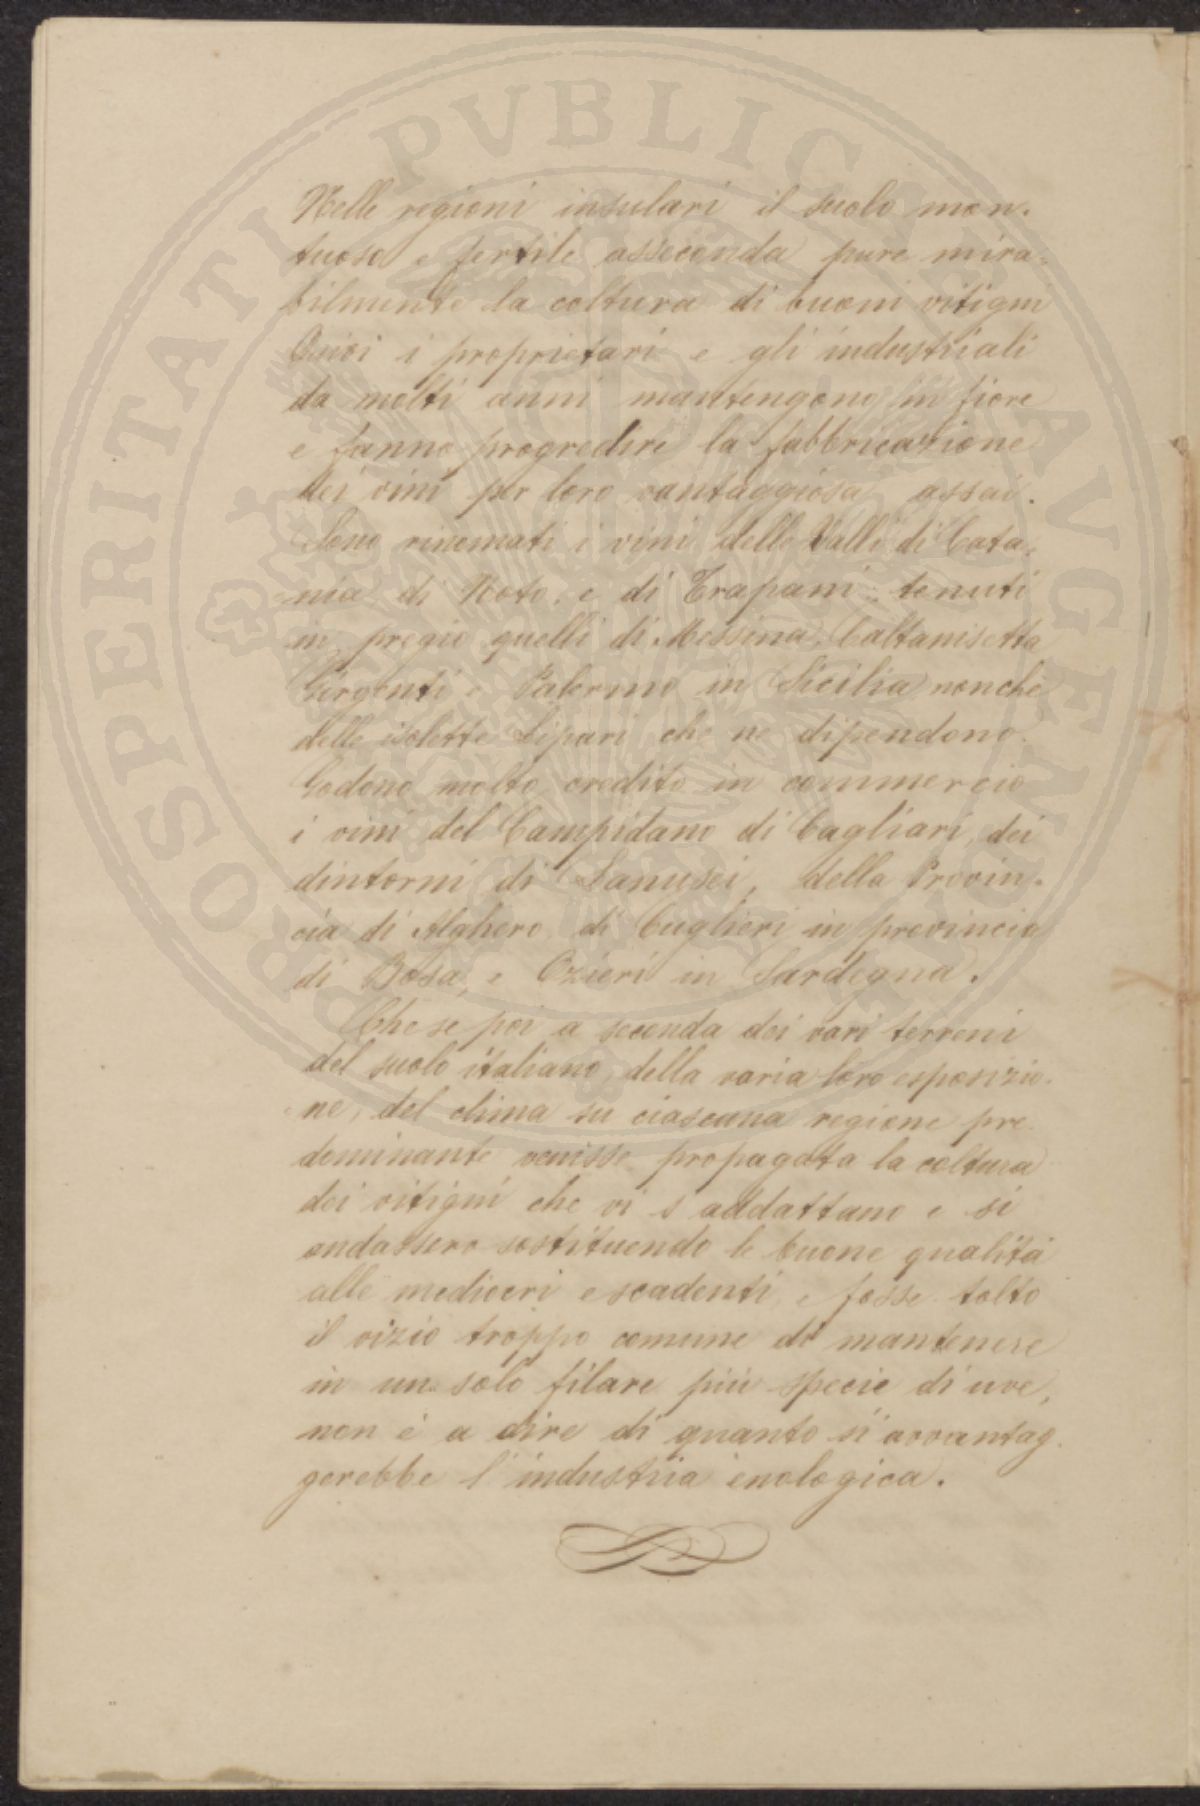 PROSPERITATI PVBLICAE AVGENDAE
Nelle regioni insulari il suolo mon-
tuoso e fertile asseconda pure mira-
bilmente la coltura di buoni vitigni
Quivi i proprietari e gli industriali
da molti anni mantengono in fiore
e fanno progredire la fabbricazione
dei vini per loro vantaggiosa assai.
Sono rinomati i vini delle Valli di Cata-
nia, di Noto, e di Trapani; tenuti
in pregio quelli di Messina, Caltanisetta
Girgenti e Palermo in Sicilia nonchè
delle isolette Lipari che ne dipendono.
Godono molto credito in commercio
i vini del Campidano di Cagliari, dei
dintorni di Lanusei, della Provin-
cia di Alghero, di Cuglieri in provincia
di Bosa, e Ozieri in Sardegna.
Che se poi a seconda dei vari terreni
del suolo italiano, della varia loro esposizio-
ne, del clima su ciascuna regione pre-
dominante venisse propagata la coltura
dei vitigni che vi s'addattano e si
andassero sostituendo le buone qualità
alle mediocri e scadenti, e fosse tolto
il vizio troppo comune di mantenere
in un solo filare più specie di uve,
non è a dire di quanto si avvantag-
gerebbe l'industria enologica.